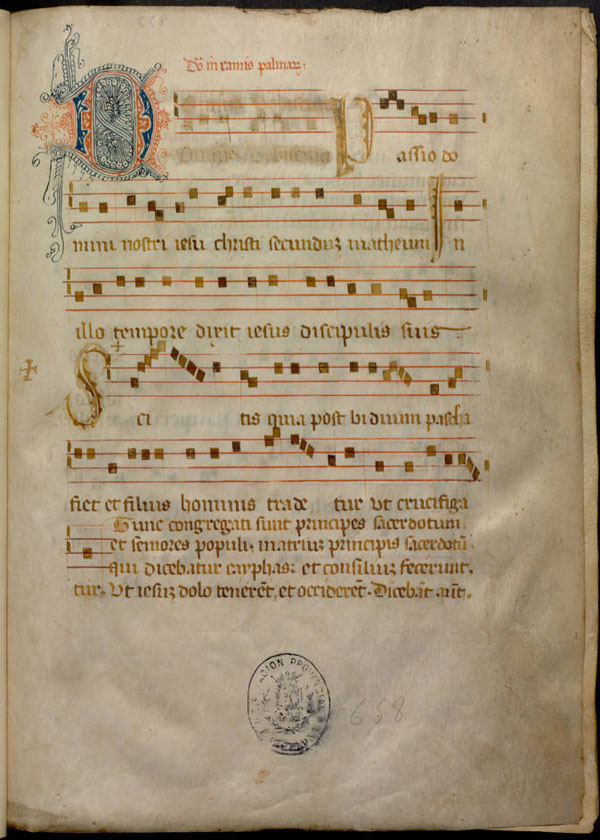 658
Dō in ramis palmaꝝ:
Passio do
mini nostri iesu christi secunduꝫ matheum In
illo tempore dixit iesus discipulis suis
Sci tis quia post biduum pascha
fiet et filius hominis trade tur vt crucifiga
Tunc congregati sunt principes sacerdotum
et seniores populi, in atriuꝫ principis sacerdotū
qui dicebatur cayphas: et consiliuꝫ fecerunt,
tur. Vt iesuꝫ dolo tenerēt, et occiderēt. Dicebāt aūt.
DIPUTACION PROVINCIAL
658